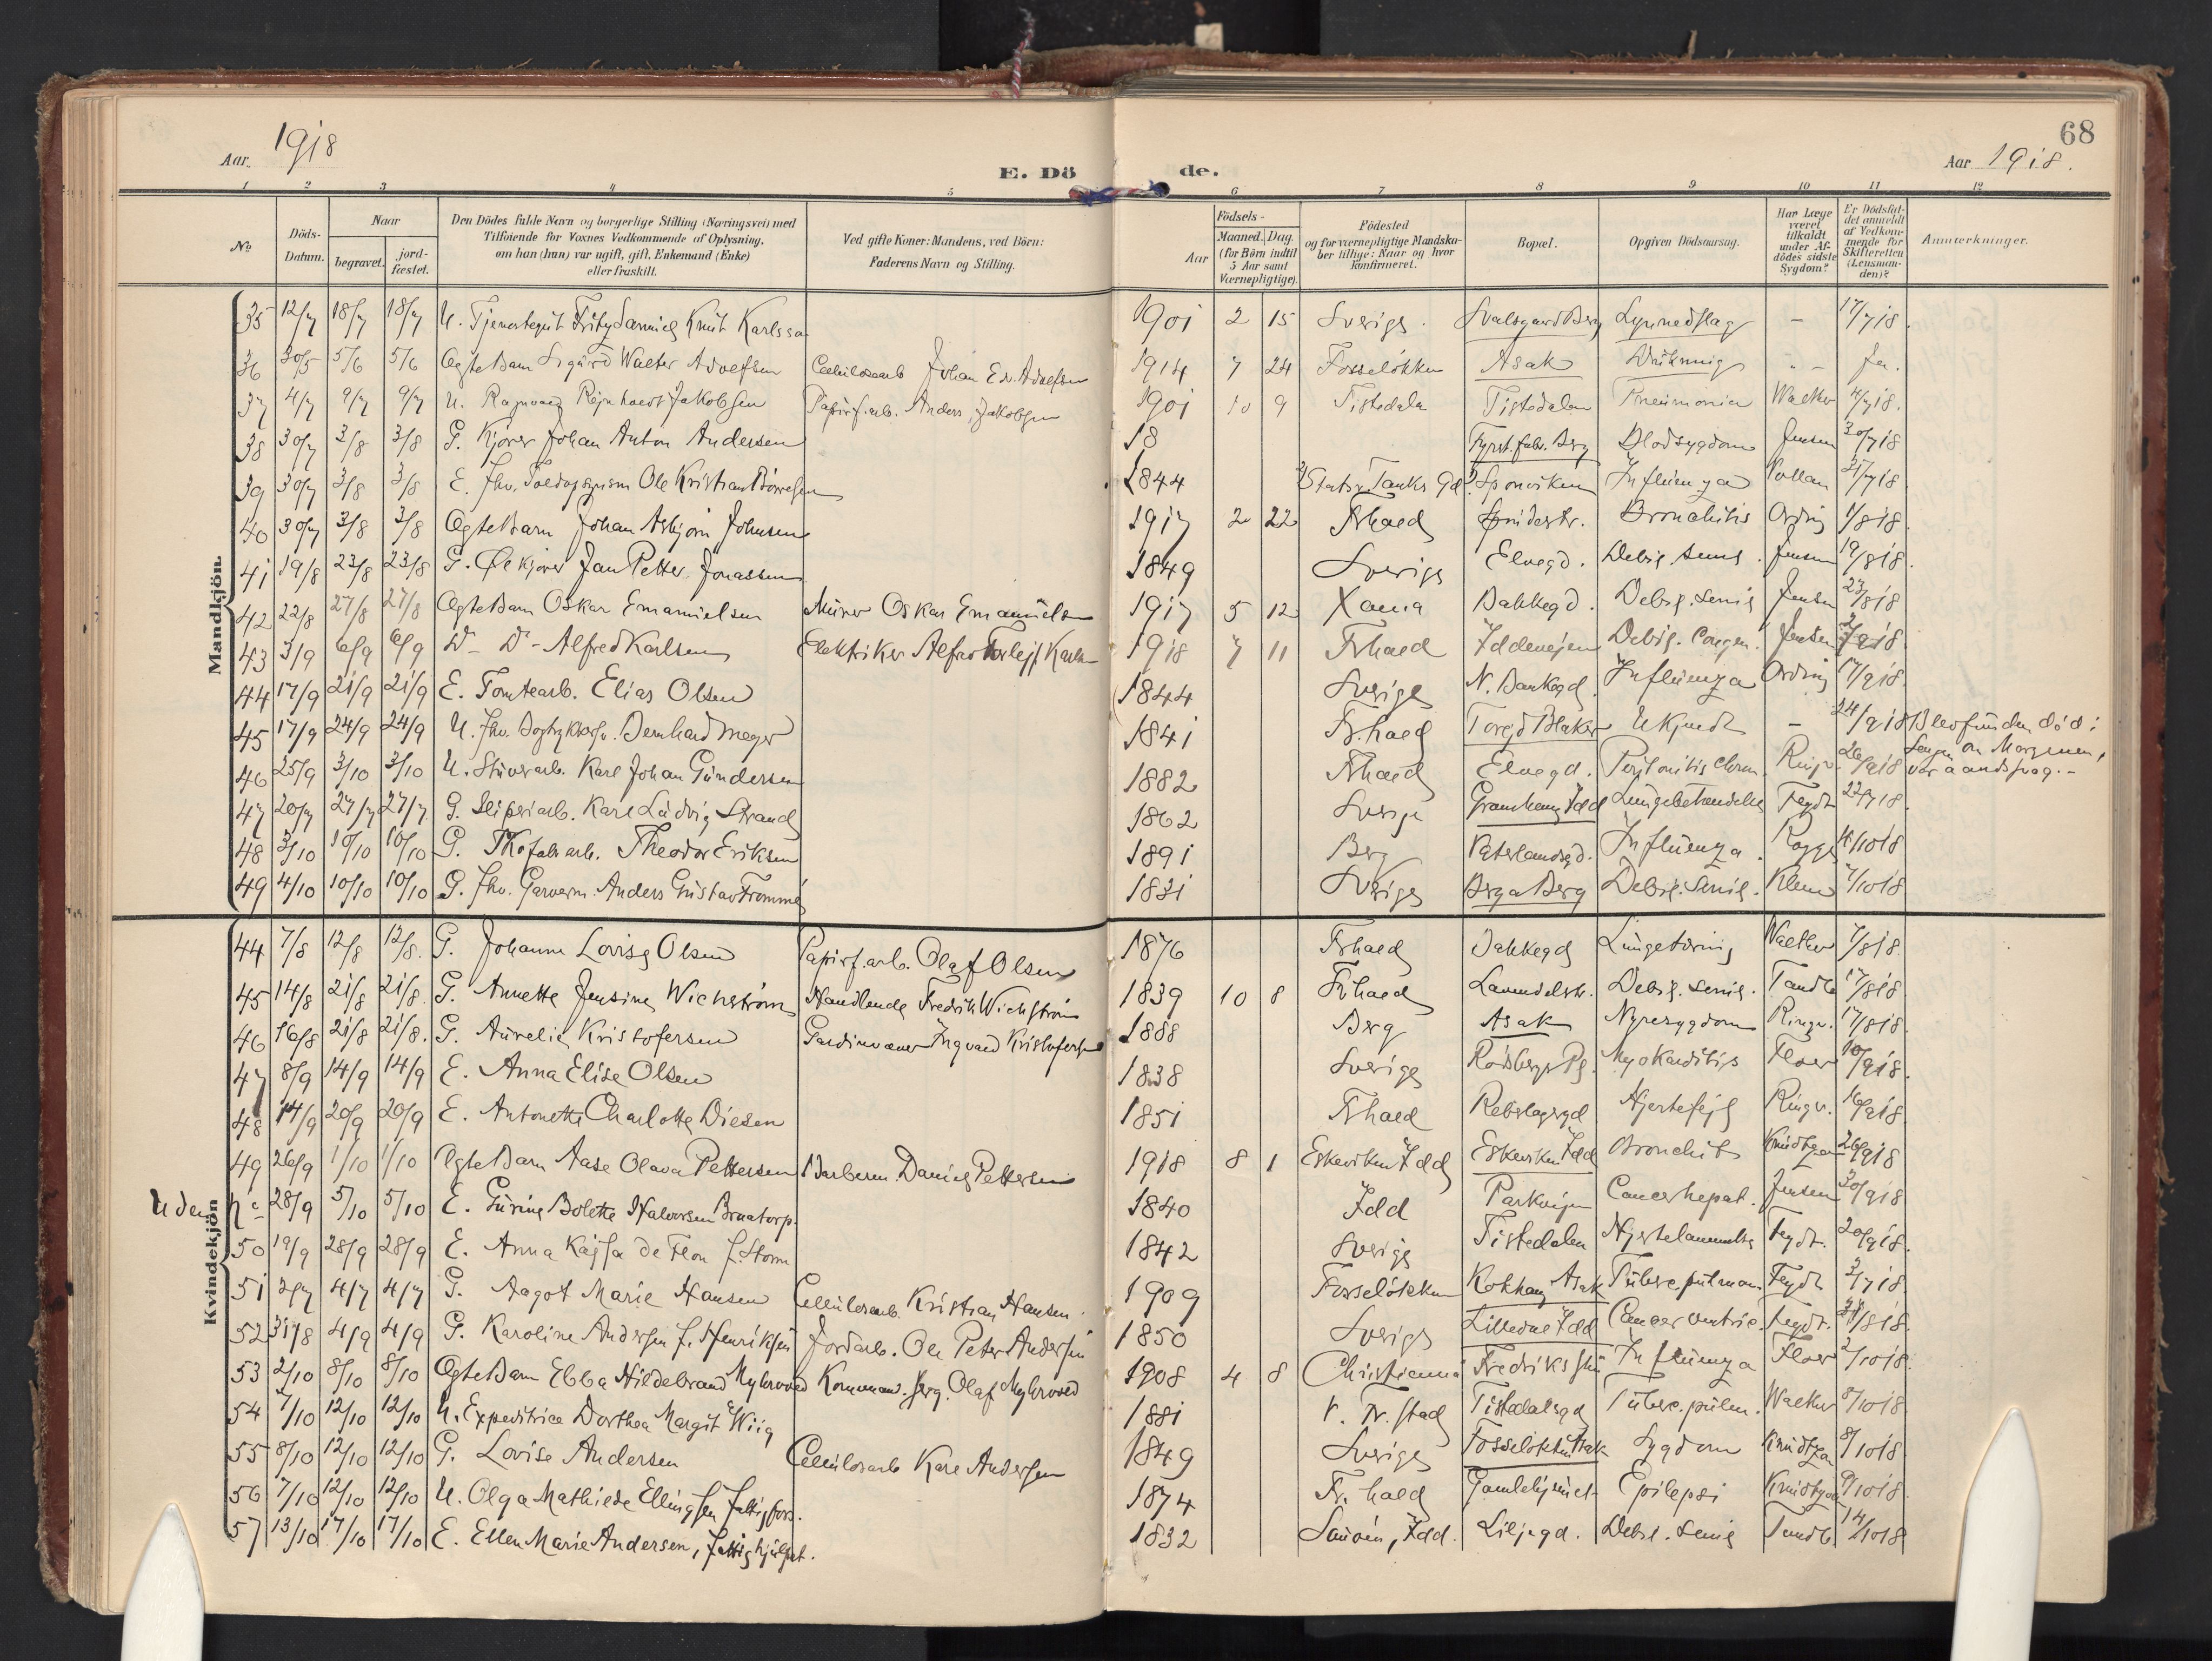 Aar. 1918
E. Dö de.
68
Aar 1918.
1 2 3 4 5 6 7 8 9 10 11 12
No
Döds-Datum.
Naar
begravet. jord-fæstet.
Den Dödes fulde Navn og borgerlige Stilling (Næringsvei) med
Tilföiende for Voxnes Vedkommende af Oplysning,
om han (hun) var ugift, gift, Enkemand (Enke)
eller fraskilt.
Ved gifte Koner: Mandens, ved Börn:
Faderens Navn og Stilling.
Födsels-
Aar
Maaned. Dag.
(for Börn indtil
5 Aar samt
Værnepligtige).
Födested
og for værnepligtige Mandska-
ber tillige: Naar og hvor
konfirmeret.
Bopæl.
Opgiven Dödsaarsag.
Har Læge
været
tilkaldt
under Af-
dödes sidste
Sygdom?
Er Dödsfal-
det anmeldt
af Vedkom-
mende for
Skifteretten
(Lensman-
den)?
Anmærkninger.
Mandkjön.
35 12/7 18/7 18/7 U. Tjenestegut Knut Karlsson 1901 2 15 Sverige. Svalsgaard Berg Lynnedslag - 17/7 18.
36 30/5 5/6 5/6 Ægte Barn Sigurd Walter Adolfsen Cellulosearb Johan Edv. Adolfsen 1914 7 24 Fosseløkken Asak Drukning " - Ja.
37 4/7 9/7 9/7 U. Ragnvald Reinhardt Jakobsen Papirf.arb. Anders Jakobsen 1901 10 9 Tistedalen Tistedalen Pneumonia Walther 4/7 18.
38 30/7 3/8 3/8 G. Kjører Johan Anton Andersen 18 Fyrst.fabr. Berg Blodsygdom Jensen 30/7 18
39 30/7 3/8 3/8 E. Fhv. Toldopsynsm Ole Kristian Børresen 1844 Tanks Gd. Sponviken Influenza Vollan 31/7 18
40 30/7 3/8 3/8 Ægte Barn Johan Asbjørn Johnsen 1917 2 22 Frhald Bronchitis Ording 1/8 18.
41 19/8 23/8 23/8 G. Ølkjører Jan Petter Jonassen 1849 Sverige Elvegd. Debil. senil. Jensen 19/8 18.
42 22/8 27/8 27/8 Ægte Barn Oskar Emanuelsen Murer Oskar Emanuelsen 1917 5 12 Xania Bakkegd. Debil. senil Jensen 23/8 18
43 3/9 6/9 6/9 D- D- Alfred Karlsen Elektriker Alfred Torleif Karlsen 1918 7 11 Frhald Iddeveien Debil. congen. Jensen 18.
44 17/9 21/9 21/9 E. Tomtearb. Elias Olsen 1844 Sverige N. Bankegd. Influenza Ording 17/9 18.
45 17/9 24/9 24/9 U. Fhv. Bogtrykkersv. Bernhard Meyer 1841 Fr.hald Torgd Blaker Ukjendt - 24/9 18 Blev funden død i
46 25/9 3/10 3/10 U. Stuverarb. Karl Johan Gundersen 1882 Frhald Elvegd. Peritonitis chron. Ringv. 26/9 18 Sengen om Morgenen,
var aandssvag.-
47 20/7 27/7 27/7 G. Sliperiarb. Karl Ludvig Strand 1862 Sverige Idd Lungebetændelse Feydt 22/7 18.
48 3/10 10/10 10/10 G. Skofabr.arb. Theodor Eriksen 1891 Berg Vaterlandsgd. Influenza. Rogge 4/10 18
49 4/10 10/10 10/10 G. Fhv. Garverm. Anders Gustav Frommé 1831 Sverige Berg Debil. senil. Klem 7/10 18
Kvindekjön
44 7/8 12/8 12/8. G. Johanne Lovise Olsen Papirf.arb. Olaf Olsen 1876 Frhald Bakkegd Lungetæring Walther 7/8 18.
45 14/8 21/8 21/8. G. Annette Jensine Wichstrøm Handlende Fredrik Wichstrøm 1839 10 8 Frhald Lavendelstr. Debil. senil. 17/8 18.
46 16/8 21/8 21/8. G. Aurelie Kristofersen Gardinvæver Ingvald Kristofersen 1888 Berg Asak Nyresygdom Ringv. 17/8 18
47 8/9 14/9 14/9 E. Anna Elise Olsen 1838 Sverige Myokarditis Floer 10/9 18.
48 14/9 20/9 20/9 E. Antonette Charlotte Diesen 1851 Frhald Rebslagergd Hjertefeil Ringv. 16/9 18.
49 26/9 1/10 1/10 Ægte Barn Aase Olava Pettersen Barberm. Daniel Pettersen 1918 8 1 Eskeviken Idd Eskeviken Idd Bronchit Knudtzon 26/9 18
Uden No 28/9 5/10 5/10 E. Gurine Bolette Halvorsen Braatorp. 1840 Idd Parkveien Cancer hepat. Jensen 30/9 18
50 19/9 28/9 28/9 E. Anna Kajsa de Flon f. Storm 1842 Sverige Tistedalen Hjertelammelse Feydt. 20/9 18.
51 2/7 4/7 4/7 G. Aagot Marie Hansen Cellulosearb. Kristian Hansen. 1909 Fosseløkken Asak Tuberc. pulmon. Feydt 3/7 18.
52 31/8 4/9 4/9 G. Karoline Andersen f. Henriksen Jordarb. Ole Peter Andersen 1850 Sverige Lilledal Idd Cancer ventric. Feydt. 31/8 18.
53 2/10 8/10 8/10 Ægte Barn Ebba Hildebrand Myhrvold Kommand. serg. Olaf Myhrvold 1908 4 8 Christiania Fredriksten Influenza Floer 2/10 18.
54 7/10 12/10 12/10 U. Expeditrice Dorthea Margit Wiig 1881 V. Fr.stad Tistedalsgd Tuberc. pulm. Walther 8/10 18
55 8/10 12/10 12/10 G. Lovise Andersen Cellulosearb Karl Andersen 1849 Sverige Fosseløkken Asak Sygdom Knudtzon 8/10 18.
56 7/10 12/10 12/10 U. Olga Mathilde Ellingsen fattigfors. 1874 Fr.hald Gamlehjemet Epilepsi Knudtzon 9/10 18.
57 13/10 17/10 17/10 E. Ellen Marie Andersen, fattighjulpet. 1832 Idd. Liljegd. Debil. senil 14/10 18